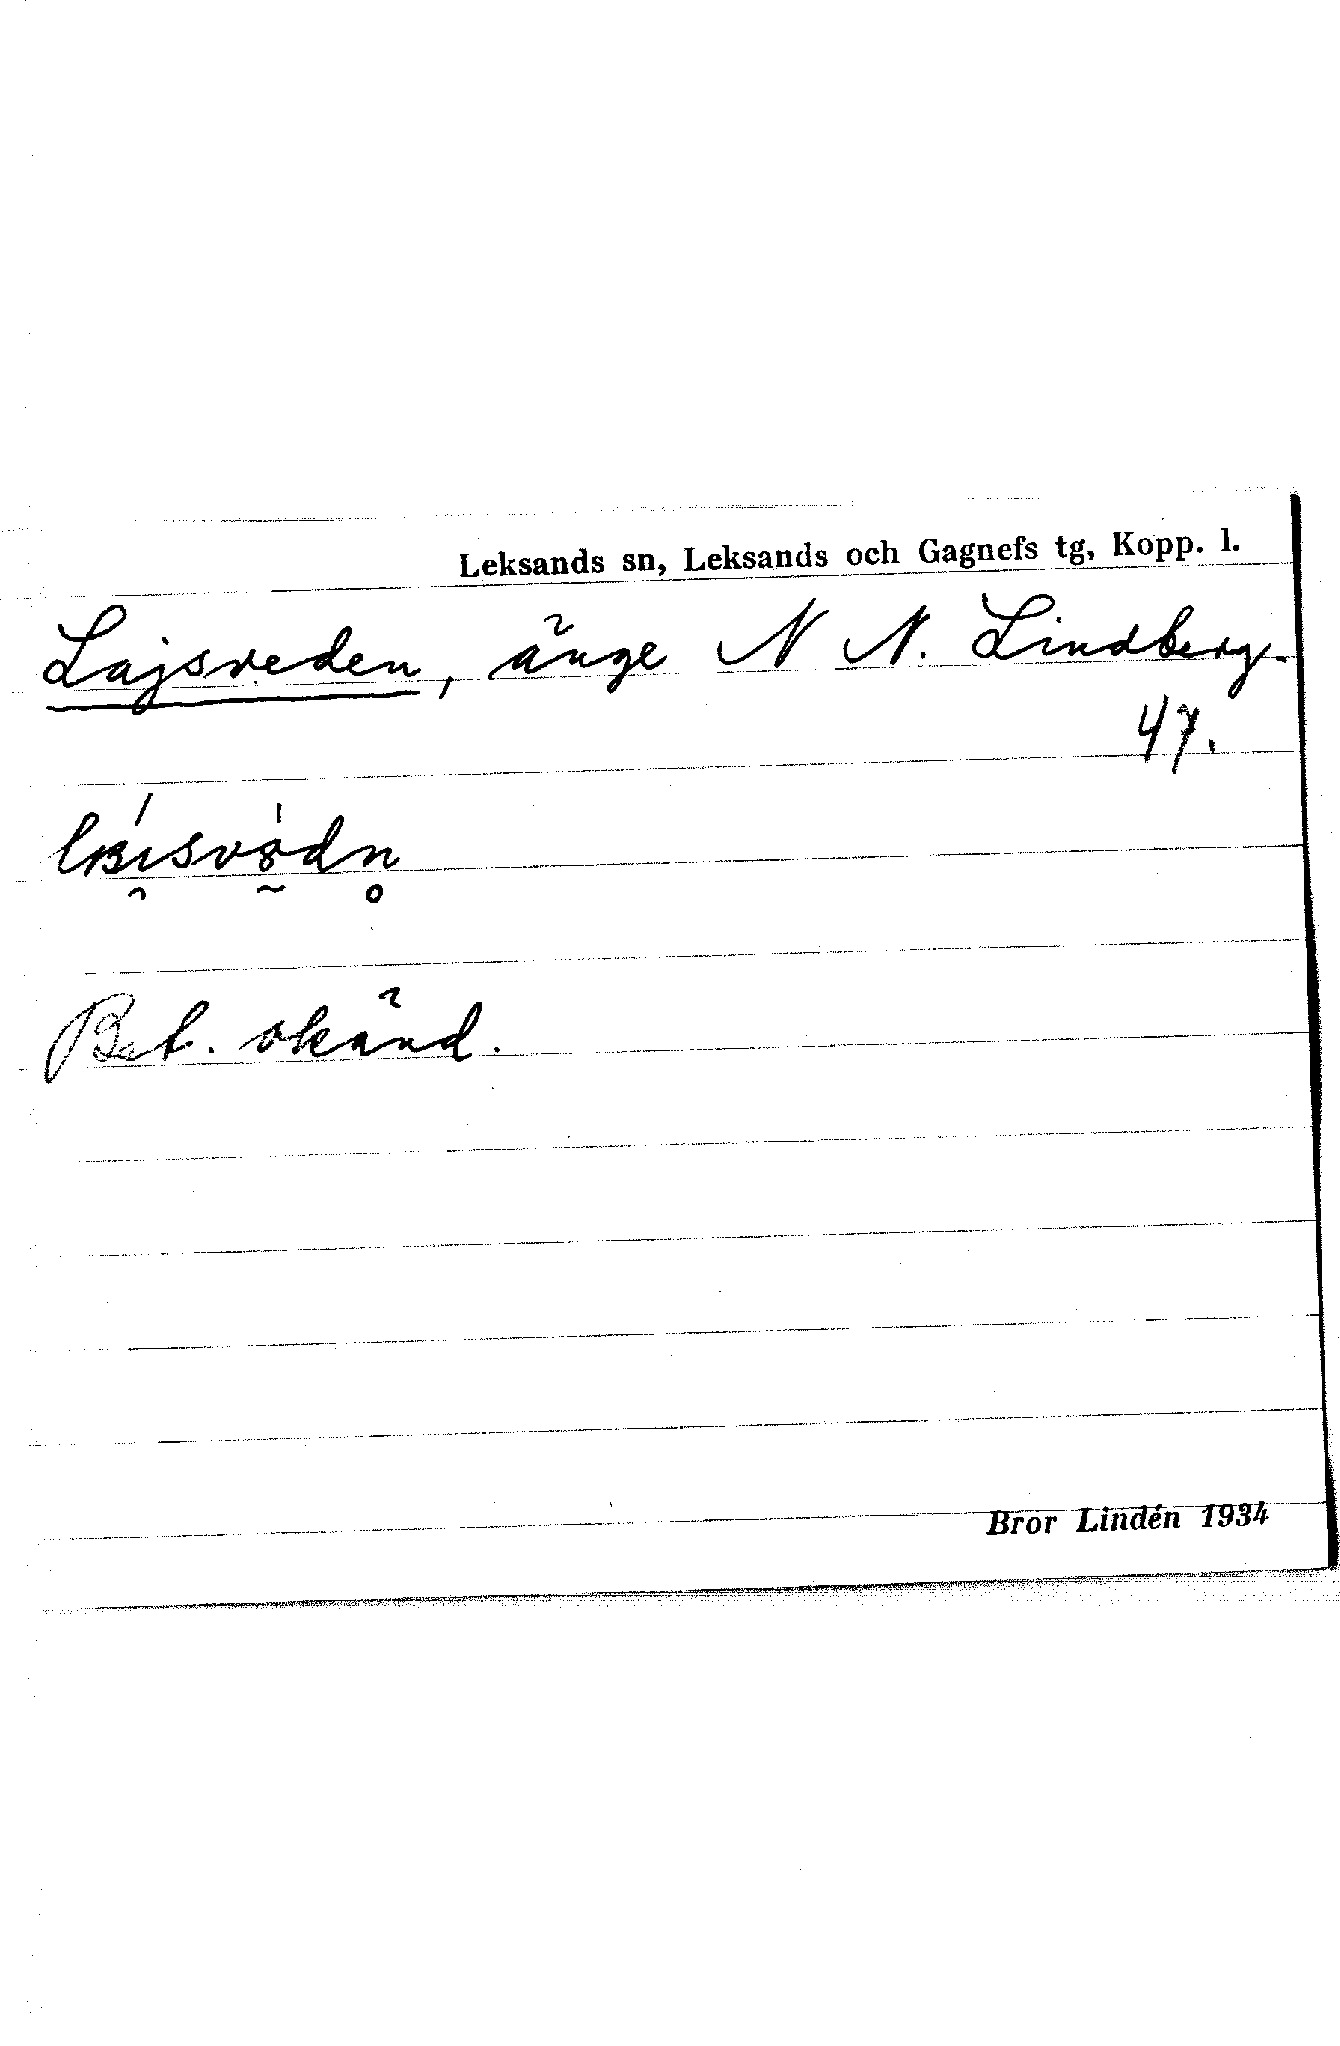 Leksands sn, Leksands och Gagnefs tg, Kopp. l.
Lajsveden, änge N N. Lindberg.
47.
Bet. okänd.
Bror Lindén 1934